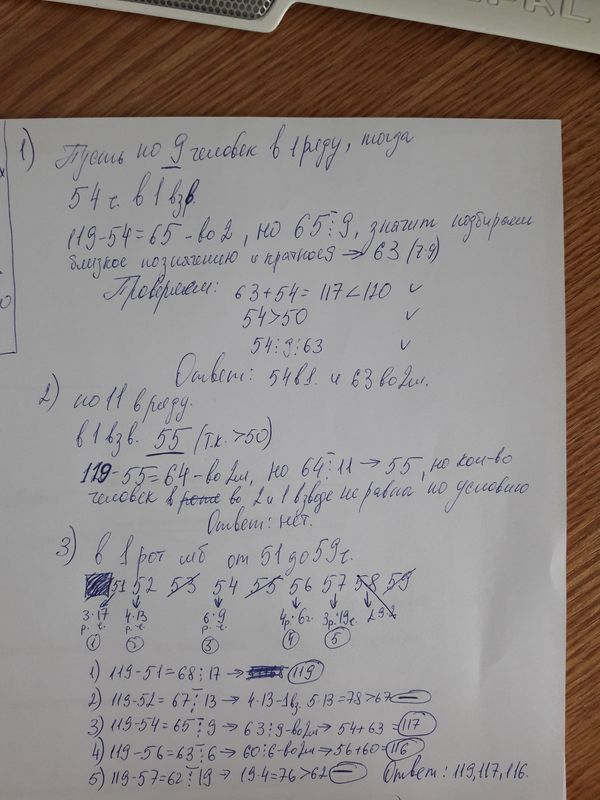 PAL
1) Пусть по 9 человек в 1 ряду, тогда
54 ч. в 1 взв.
119-54=65 - во 2, но 65⋮9, значит подбираем
близкое по значению и кратное 9 → 63 (7·9)
Проверяем: 63+54=117<120 ✓
54>50 ✓
54⋮9⋮63 ✓
Ответ: 54 в 1. и 63 во 2м.
2) по 11 в ряду.
в 1 взв. 55 (т.к. >50)
119-55=64 - во 2м, но 64⋮11 → 55, но кол-во
человек во 2 и 1 взводе не равна по условию
Ответ: нет.
3) в 1 рот мб от 51 до 59 ч.
51 52 53 54 55 56 57 58 59
3·17 4·13 6·9 4р·6ч 3р·19ч 29·2
р. ч. р. ч. р. ч.
1 2 3 4 5
1) 119-51=68⋮17 → 119
2) 119-52=67⋮13 → 4·13-1вз. 5·13=78>67 -
3) 119-54=65⋮9 → 63⋮9-во2м → 54+63=117
4) 119-56=63⋮6 → 60⋮6-во2м → 56+60=116
5) 119-57=62⋮19 → 19·4=76>62 - Ответ: 119,117,116.